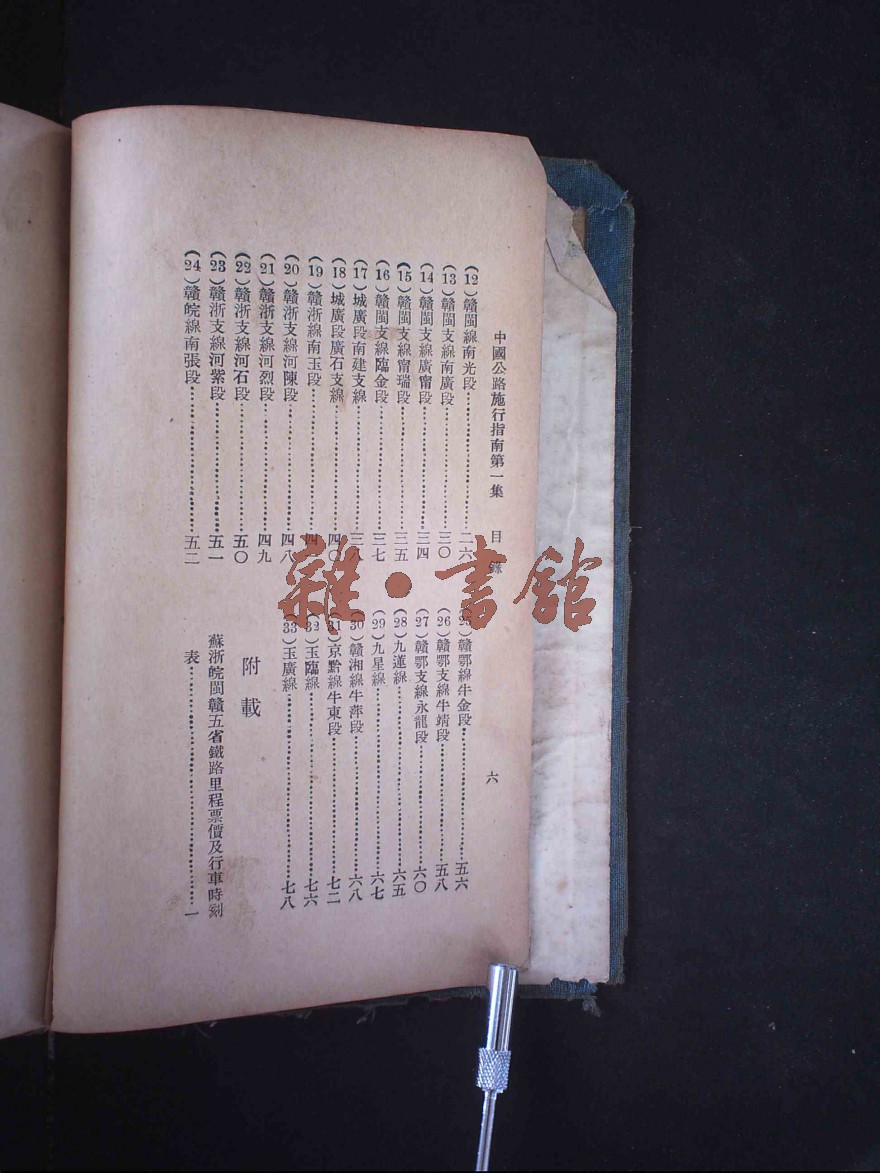 中國公路施行指南第一集 目錄 六
(12)贛閩線南光段……二六
(13)贛閩支線南廣段……三〇
(14)贛閩支線廣甯段……三四
(15)贛閩支線甯瑞段……三五
(16)贛閩支線臨金段……三七
(17)城廣段南建支線……三八
(18)城廣段廣石支線……四〇
(19)贛浙線南玉段……四
(20)贛浙支線河陳段……四八
(21)贛浙支線河烈段……四九
(22)贛浙支線河石段……五〇
(23)贛浙支線河紫段……五一
(24)贛皖線南張段……五二
(25)贛鄂線牛金段……五六
(26)贛鄂支線牛靖段……五八
(27)贛鄂支線永龍段……六〇
(28)九蓮線……六五
(29)九星線……六七
(30)贛湘線牛萍段……六八
(31)京黔線牛東段……七二
(32)玉臨線……七六
(33)玉廣線……七八
附載
蘇浙皖閩贛五省鐵路里程票價及行車時刻
表……一
雜·書館